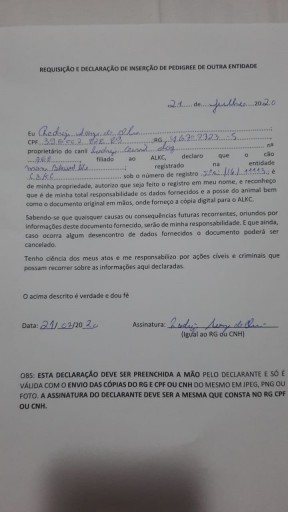 REQUISIÇÃO E DECLARAÇÃO DE INSERÇÃO DE PEDIGREE DE OUTRA ENTIDADE
21 de Julho 2020
Eu
CPF RG
proprietário do canil nº
filiado ao ALKC, declaro que o cão
registrado na entidade
sob o número de registro é
de minha propriedade, autorizo que seja feito o registro em meu nome, e reconheço
que é de minha total responsabilidade os dados fornecidos e a posse do animal bem
como o documento original em mãos, onde forneço a cópia digital para o ALKC.
Sabendo-se que quaisquer causas ou consequências futuras recorrentes, oriundos por
informações deste documento fornecido, serão de minha responsabilidade. E que ainda,
caso ocorra algum desencontro de dados fornecidos o documento poderá ser
cancelado.
Tenho ciência dos meus atos e me responsabilizo por ações cíveis e criminais que
possam recorrer sobre as informações aqui declaradas.
O acima descrito é verdade e dou fé
Data: 21/07/2020 Assinatura:
(Igual ao RG ou CNH)
OBS: ESTA DECLARAÇÃO DEVE SER PREENCHIDA A MÃO PELO DECLARANTE E SÓ É
VÁLIDA COM O ENVIO DAS CÓPIAS DO RG E CPF OU CNH DO MESMO EM JPEG, PNG OU
FOTO. A ASSINATURA DO DECLARANTE DEVE SER A MESMA QUE CONSTA NO RG CPF
OU CNH.